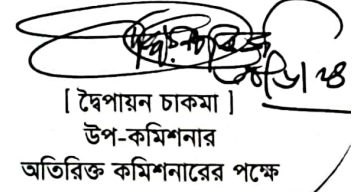 [ দ্বৈপায়ন চাকমা ]
উপ-কমিশনার
অতিরিক্ত কমিশনারের পক্ষে